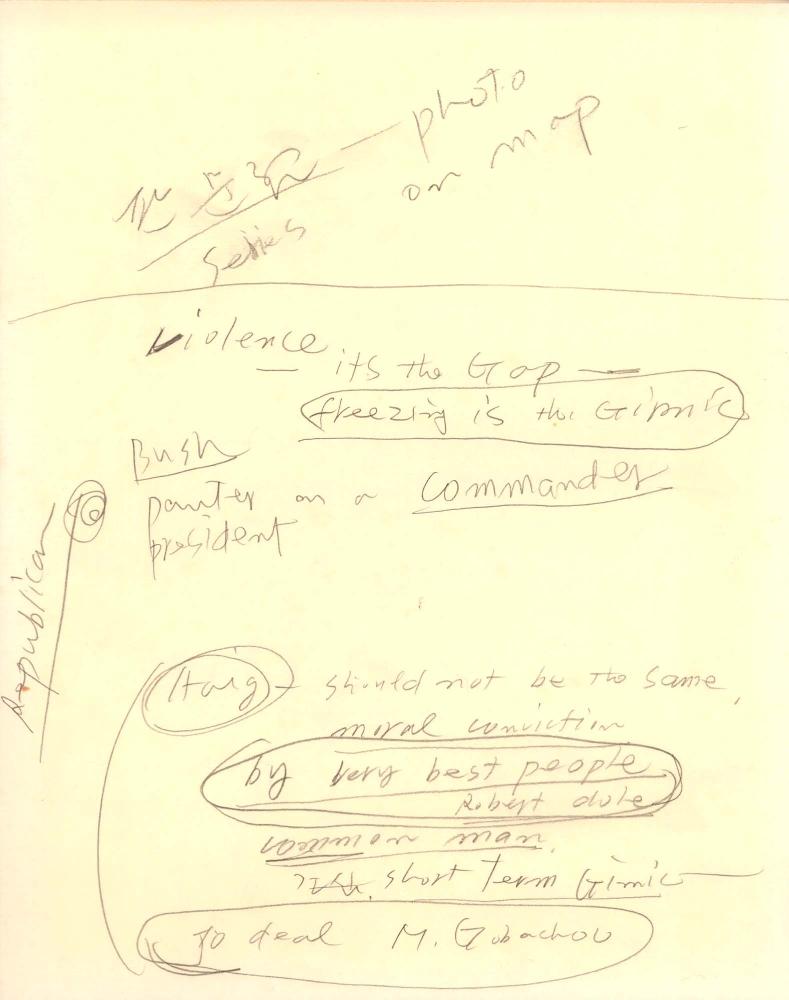 photo
on map
series
violence
its the Gap —
freezing is the Gimic
Bush
on a commander
president
Republican
Haig - should not be the same,
moral conviction
by very best people
Robert dole
common man.
short term Gimic
To deal M. Gobachou